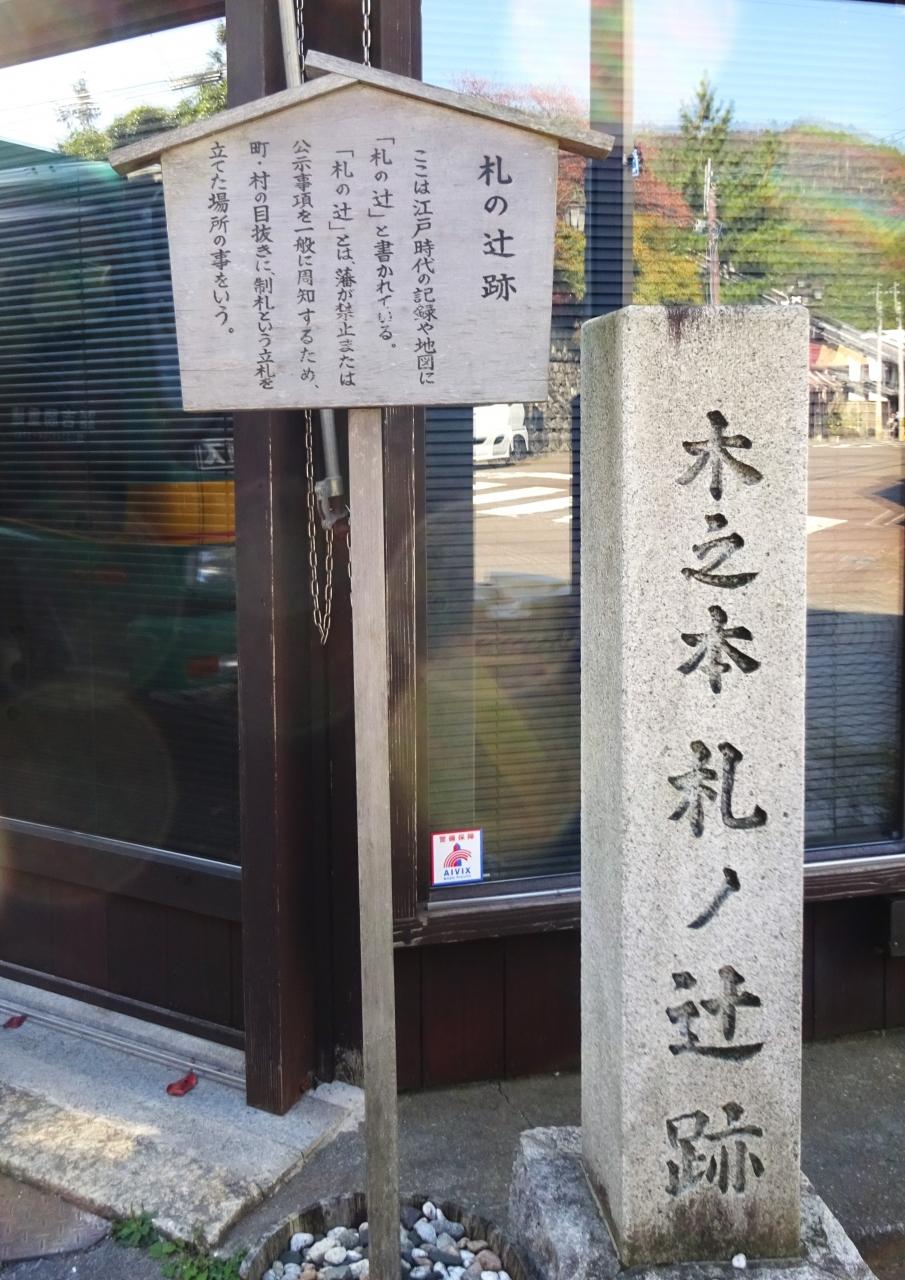 札の辻跡
ここは江戸時代の記録や地図に
「札の辻」と書かれている。
「札の辻」とは、藩が禁止または
公示事項を一般に周知するため、
町・村の目抜きに、制札という立札を
立てた場所の事をいう。
木之本札ノ辻跡
警備保障
AIVIX